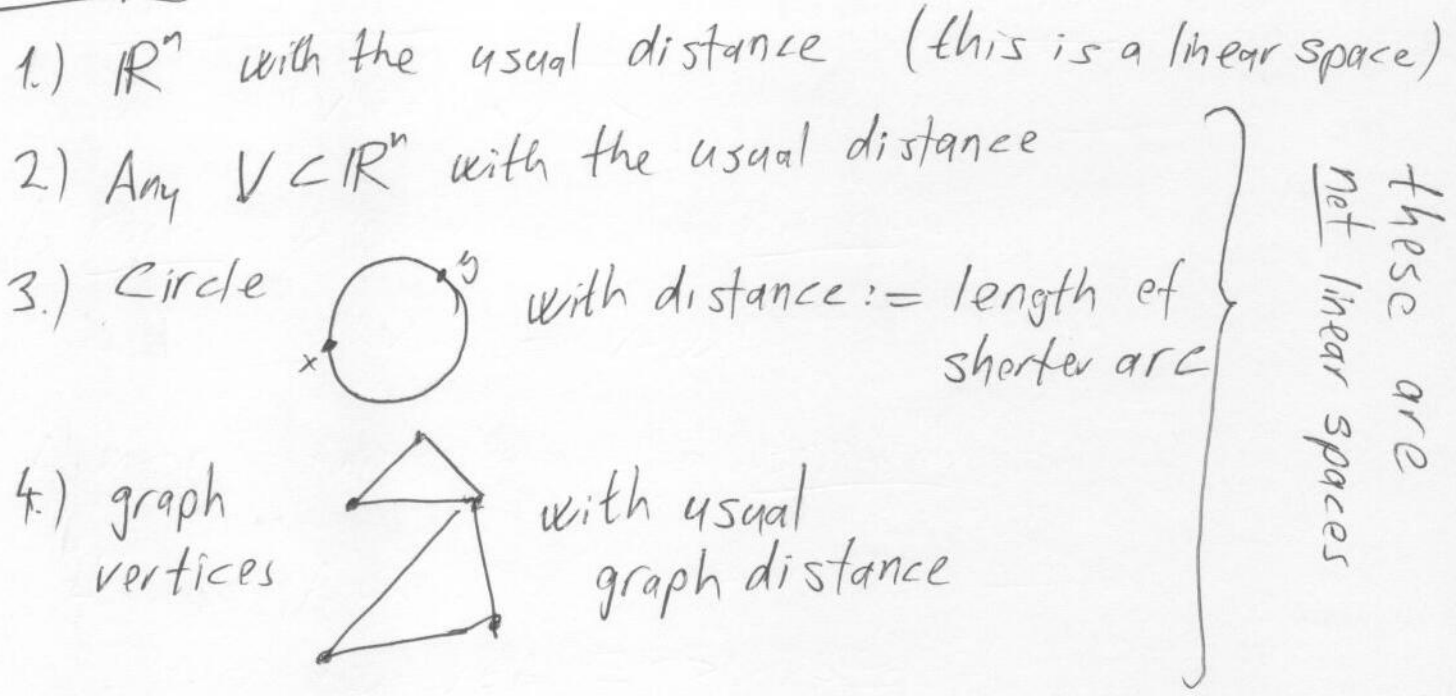 1.) ℝⁿ with the usual distance (this is a linear space)
2.) Any V ⊂ ℝⁿ with the usual distance
3.) Circle x y with distance := length of
shorter arc
4.) graph with usual
vertices graph distance
these are
not linear spaces